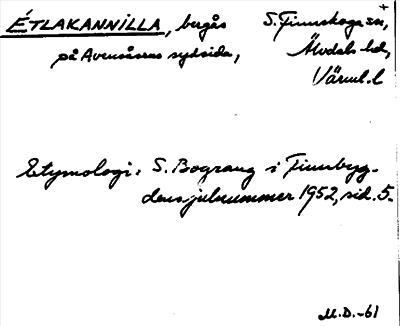 ÉTLAKANNILLA, bergås
på Avensåsens sydsida,
S. Finnskoga sn,
Älvdals hd,
Värml. l
Etymologi: S. Bograng i Finnbyg-
dens julnummer 1952, sid. 5.
M.D. -61